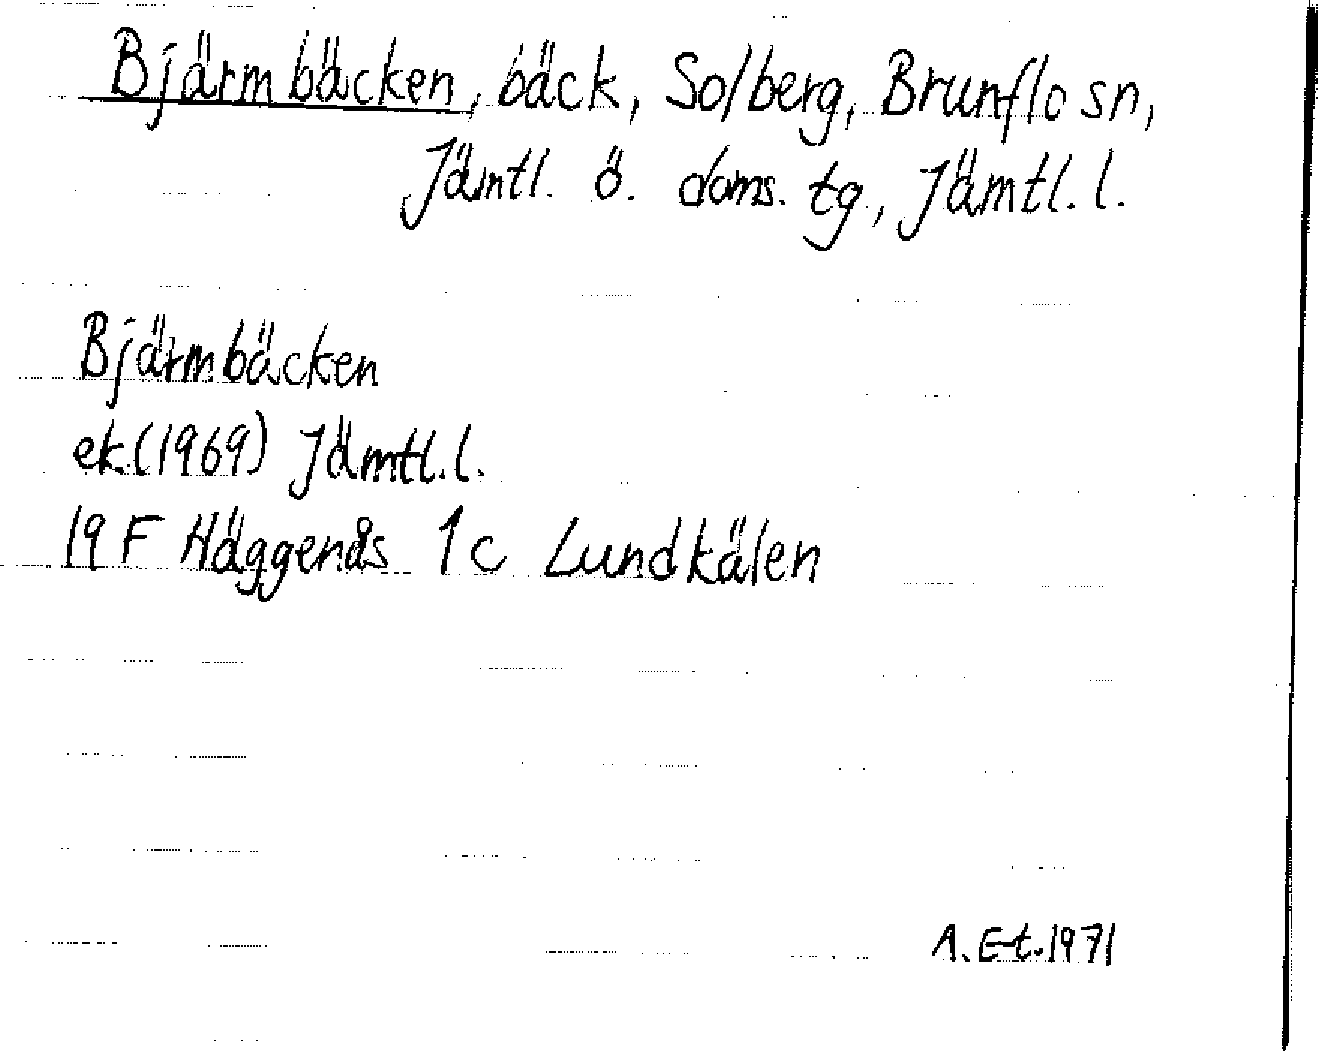 Bjärmbäcken, bäck, Solberg, Brunflo sn,
Jämtl. ö. doms. tg., Jämtl. l.
Bjärmbäcken
ek.(1969) Jämtl. l.
19 F Häggenås 1c Lundkälen
A. E-t. 1971